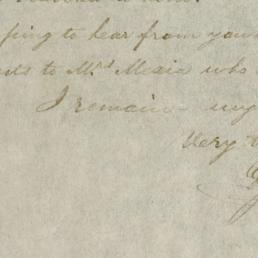 ping to hear from you
to Mrs Mexia who
I remain my
Very